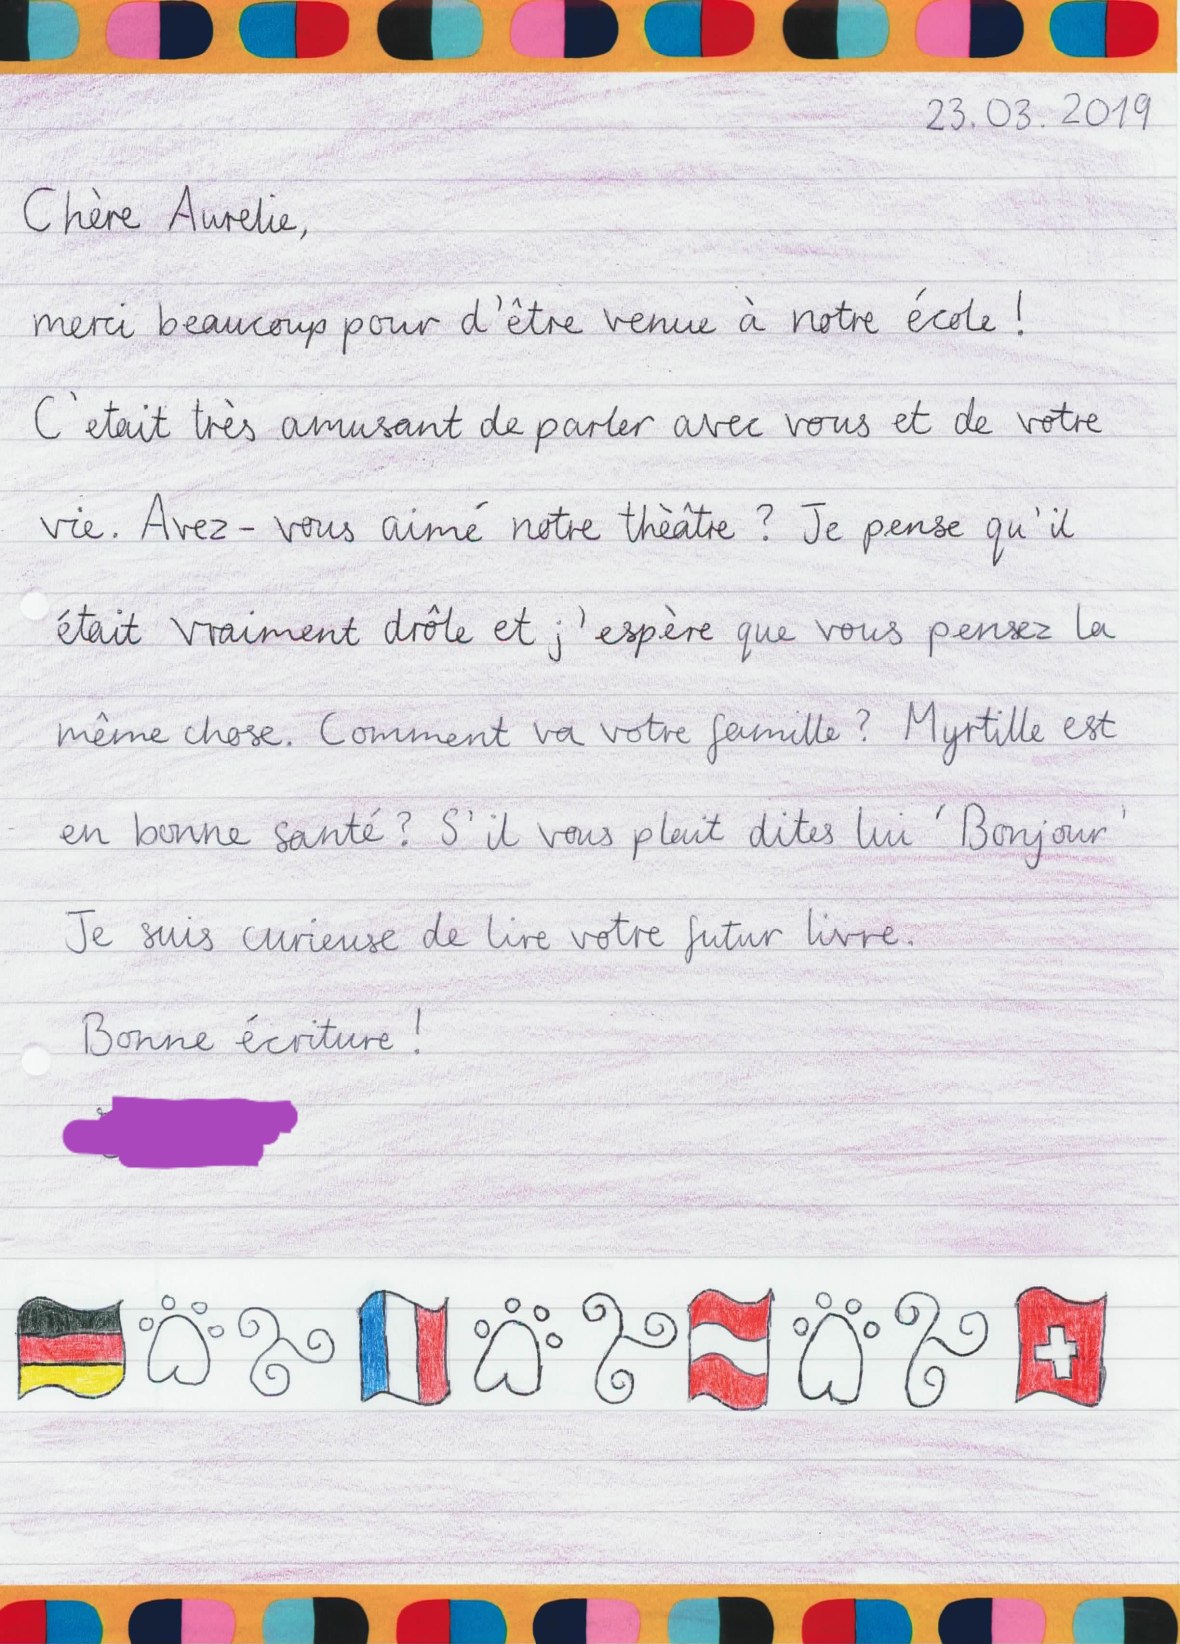 23.03.2019
Chère Aurelie,
merci beaucoup pour d'être venue à notre école !
C'etait très amusant de parler avec vous et de votre
vie. Avez-vous aimé notre thèâtre ? Je pense qu'il
était vraiment drôle et j'espère que vous pensez la
même chose. Comment va votre famille ? Myrtille est
en bonne santé ? S'il vous plait dites lui 'Bonjour'
Je suis curieuse de lire votre futur livre.
Bonne écriture !